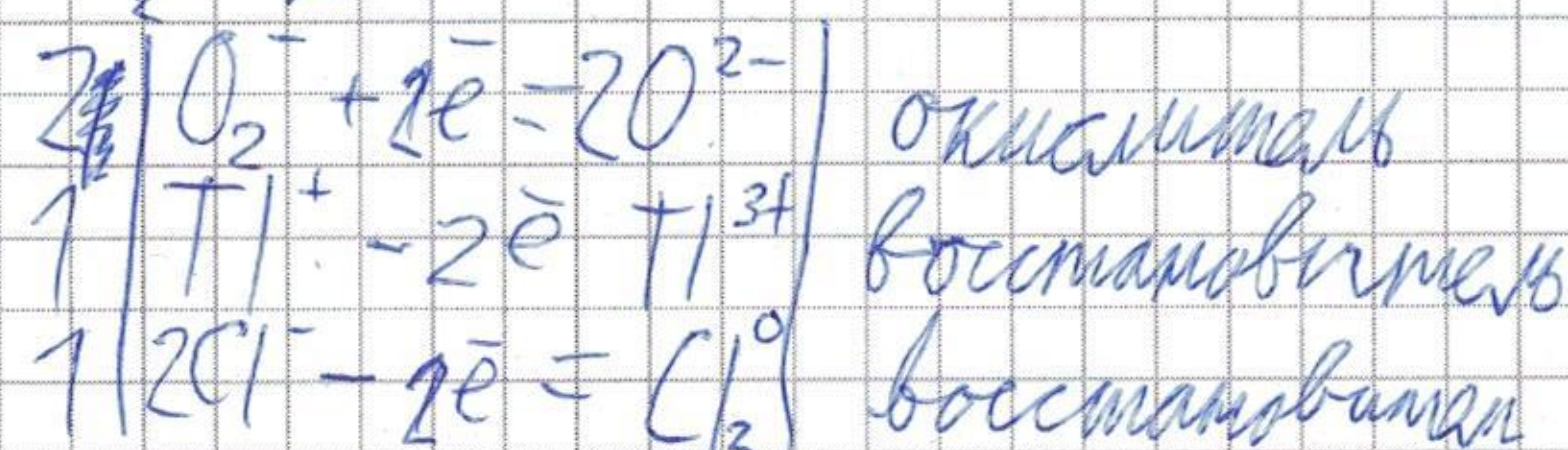 2 | O₂⁻ + 2ē = 2O²⁻ | окислитель
1 | Tl⁺ - 2ē Tl³⁺ | восстановитель
1 | 2Cl⁻ - 2ē = Cl₂⁰ | восстановител